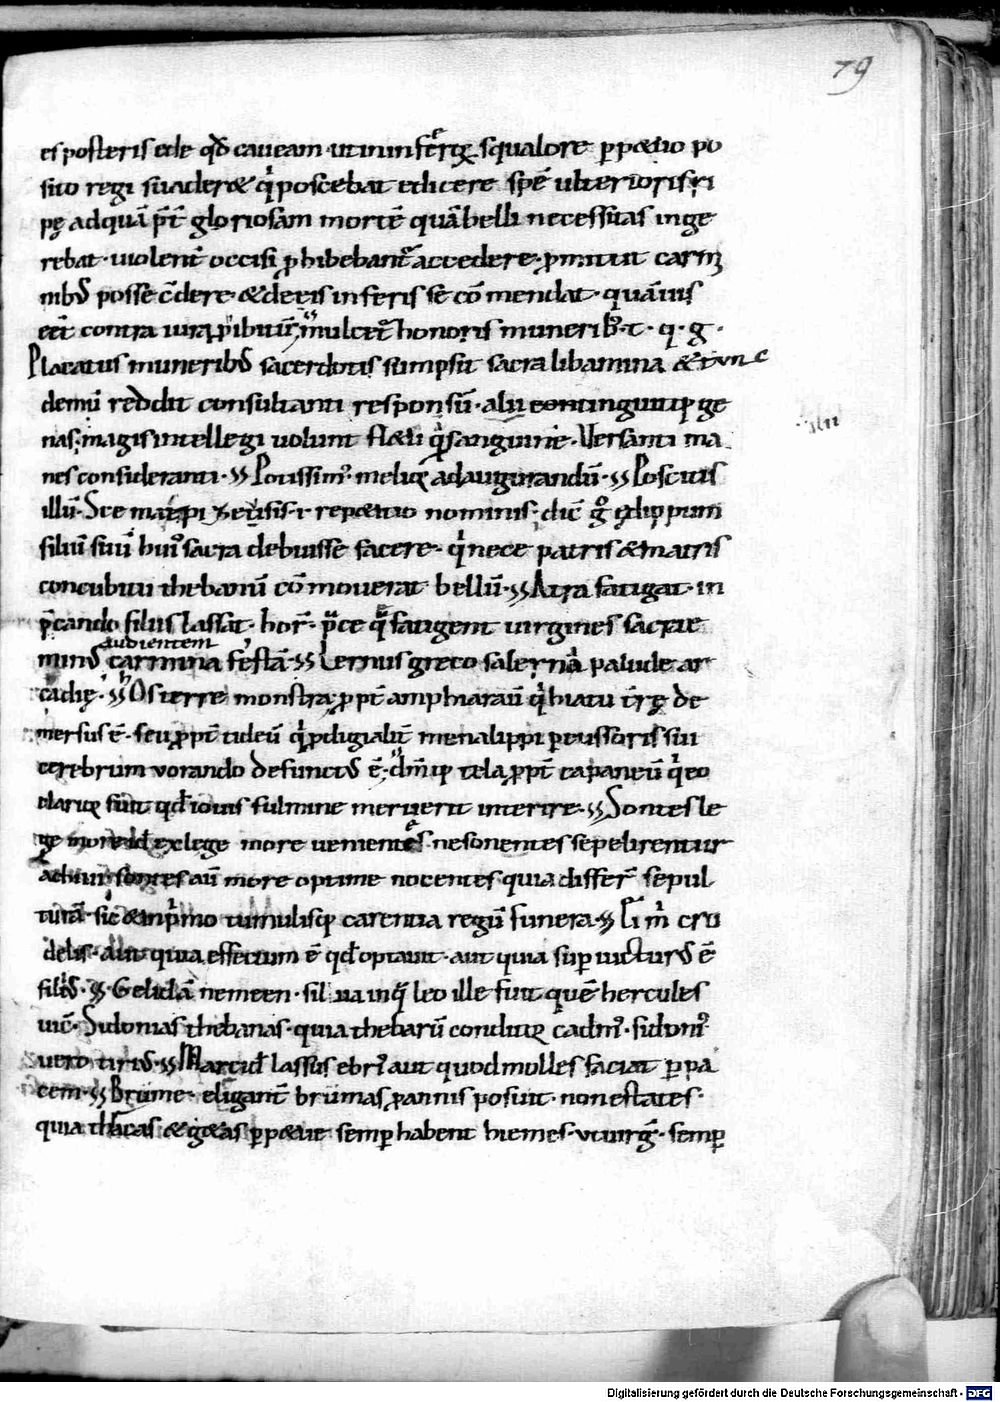 79
es posteris ede qd̄ caueam ut in inferæ squalore ꝑpetuo po
sito regi suaderet q̇ poscebat edicere spē ulterioris ri
pę ad quā p̄t gloriosam mortē quā belli necessitas inge
rebat · uiolent̄ occisi ꝓhibebant̄ accedere · ꝓmittit carm
nibꝰ posse c̄dere · & de eis inferis se cōmendat · quāuis
honoris muneribꝰ · t · q · g ·
Placatus muneribꝰ sacerdotis sumpsit sacra libamina & tunc
demū reddit consultanti responsū · alii contingunt ge
nas · magis intellegi uolunt fleti sanguine · Versanti ma
nes consideranti · Potissimꝰ ad augurandū · Poscitis
illū · repetitio nominis · dic̄ ędippum
filiū suū huiꝰ sacra debuisse facere · q̇ nece patris & matris
concubitu thebanū cōmouerat bellū · Atra fatigat · in
p̄cando filius lassat · hor̄ · p̄ce q̄ fatigent uirgines sacræ
audientem
minꝰ carmina Lernus greco palude ar
cadię · Os terre monstra ꝓpt̄ amphiaraū q̇ hiatu t̄rę de
mersus ē · seu ꝓpt̄ tideū q̇ menalippi ꝑcussoris sui
cerebrum uorando defunctꝰ ē · tela ꝓpt̄ capaneū q̇ eo
fuit qd̄ iouis fulmine meruerit interire · Sontes le
ge more ueniente ne sonentes sepelirentur
sontes aū more optime nocentes quia differ̄ sepul
turā · sic̄ & in p̄mo tumulisq; carentia regū funera · cru
delis · aut quia effectum ē qd̄ optauit · aut quia sup uicturꝰ ē
Gelidā nemeen · leo ille fuit quē hercules
uic̄ · Sidonias thebanas · quia thebarū conditor cadmꝰ · sidoniꝰ
uero tirius · Marcid lassus ebriꝰ aut quod molles faciat ꝑ pa
cem · Brume · elegant̄ brumas ꝓ annis posuit · non estates ·
quia thracas & getas ꝑpetue semꝑ habent hiemes · ut uirḡ · semꝑ
Digitalisierung gefördert durch die Deutsche Forschungsgemeinschaft - DFG